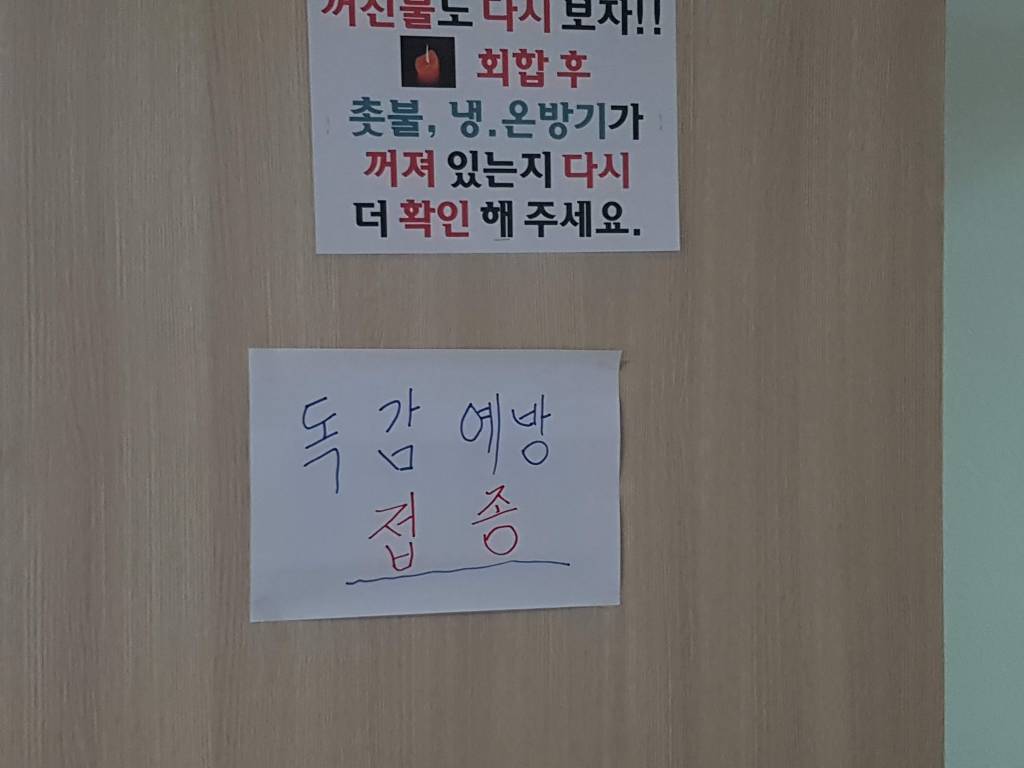 꺼진불도 다시 보자!!
회합 후
촛불, 냉.온방기가
꺼져 있는지 다시
더 확인 해 주세요.
독감 예방
접종